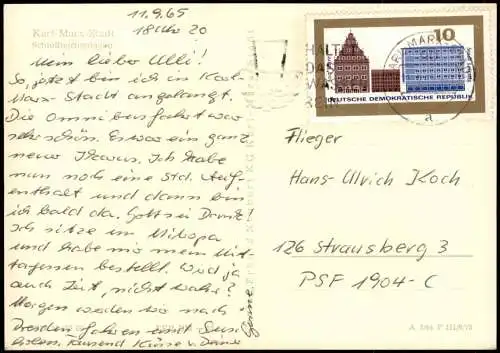 11.9.65
18 Uhr 20
Karl-Marx-Stadt
Mein lieber Ulli!
So, jetzt bin ich in Karl-
Marx-Stadt angelangt.
Die Omnibusfahrt war
sehr schön. Es war ein ganz
neuer Ikarus. Ich habe
nun noch eine Std. Auf-
enthalt und dann bin
ich bald da. Gott sei Dank!
Ich sitze im Mitropa
und habe mir mein Mit-
tagessen bestellt. Wird ja
auch Zeit, nicht wahr?
Morgen werden wir nach
Dresden fahren und
Tausend Küsse v. Deiner
10
DEUTSCHE DEMOKRATISCHE REPUBLIK
HALTE
a
Flieger
Hans-Ulrich Koch
126 Strausberg 3
PSF 1904-C